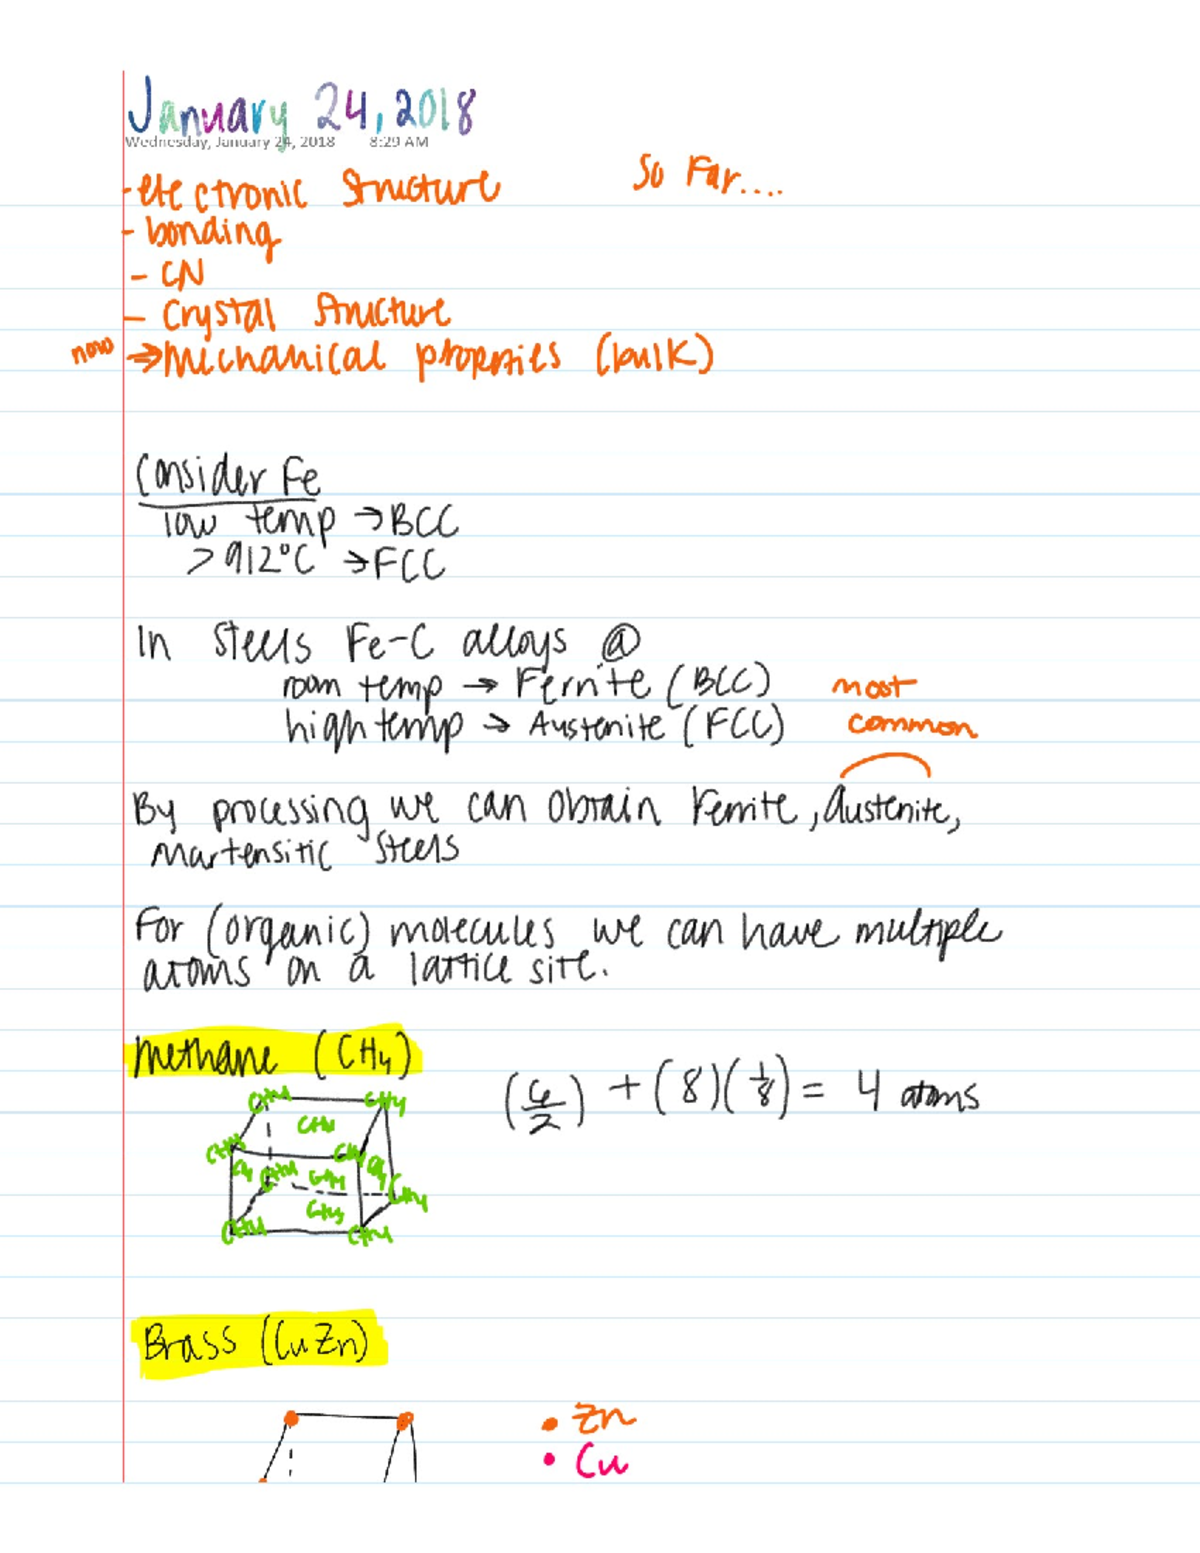 January 24, 2018
Wednesday, January 24, 2018 8:29 AM
So Far....
- electronic Structure
- bonding
- CN
- Crystal Structure
now → mechanical properties (bulk)
Consider Fe
low temp → BCC
> 912°C → FCC
In Steels Fe-C alloys @
room temp → Ferrite (BCC)
high temp → Austenite (FCC)
most
common
By processing we can obtain Ferrite, Austenite,
Martensitic Steels
For (organic) molecules we can have multiple
atoms on a lattice site.
Methane (CH4)
(6/2) + (8)(1/8) = 4 atoms
CH4 CH4
CH4
CH4 CH4
CH4 CH4 CH4 CH4
CH4 CH4
CH4 CH4
Brass (CuZn)
• Zn
• Cu